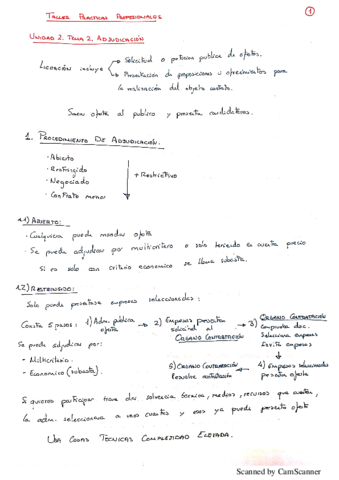 TALLER PRÁCTICAS PROFESIONALES
1
UNIDAD 2. TEMA 2. ADJUDICACIÓN
LICITACIÓN incluye
Solicitud o petición pública de ofertas.
Presentación de proposiciones u ofrecimientos para
la realización del objeto contrato.
Sacar oferta al público y presentar candidaturas.
1. PROCEDIMIENTO DE ADJUDICACIÓN.
· Abierto
· Restringido
· Negociado
· Contrato menor
+ Restrictivo
1.1) ABIERTO:
- Cualquiera puede mandar oferta
- Se puede adjudicar por multicriterio o solo teniendo en cuenta precio
Si es solo con criterio económico se llama subasta.
1.2) RESTRINGIDO:
Solo puede presentarse empresas seleccionadas:
Consta 5 pasos: 1) Adm. pública oferta
2) Empresas presentan solicitud al ÓRGANO CONTRATACIÓN
3) ÓRGANO CONTRATACIÓN
Comprueba doc.
Selecciona empresas
Invita empresas
4) Empresas seleccionadas presentan oferta
5) ÓRGANO CONTRATACIÓN
Resuelve
Se puede adjudicar por:
- Multicriterio.
- Económico (subasta).
Si quieres participar tienes que dar solvencia técnica, medios, recursos que cuentan,
la adm. selecciona a unos cuantos y esos ya puede presentar oferta
USA COSAS TÉCNICAS COMPLEJIDAD ELEVADA.
Scanned by CamScanner